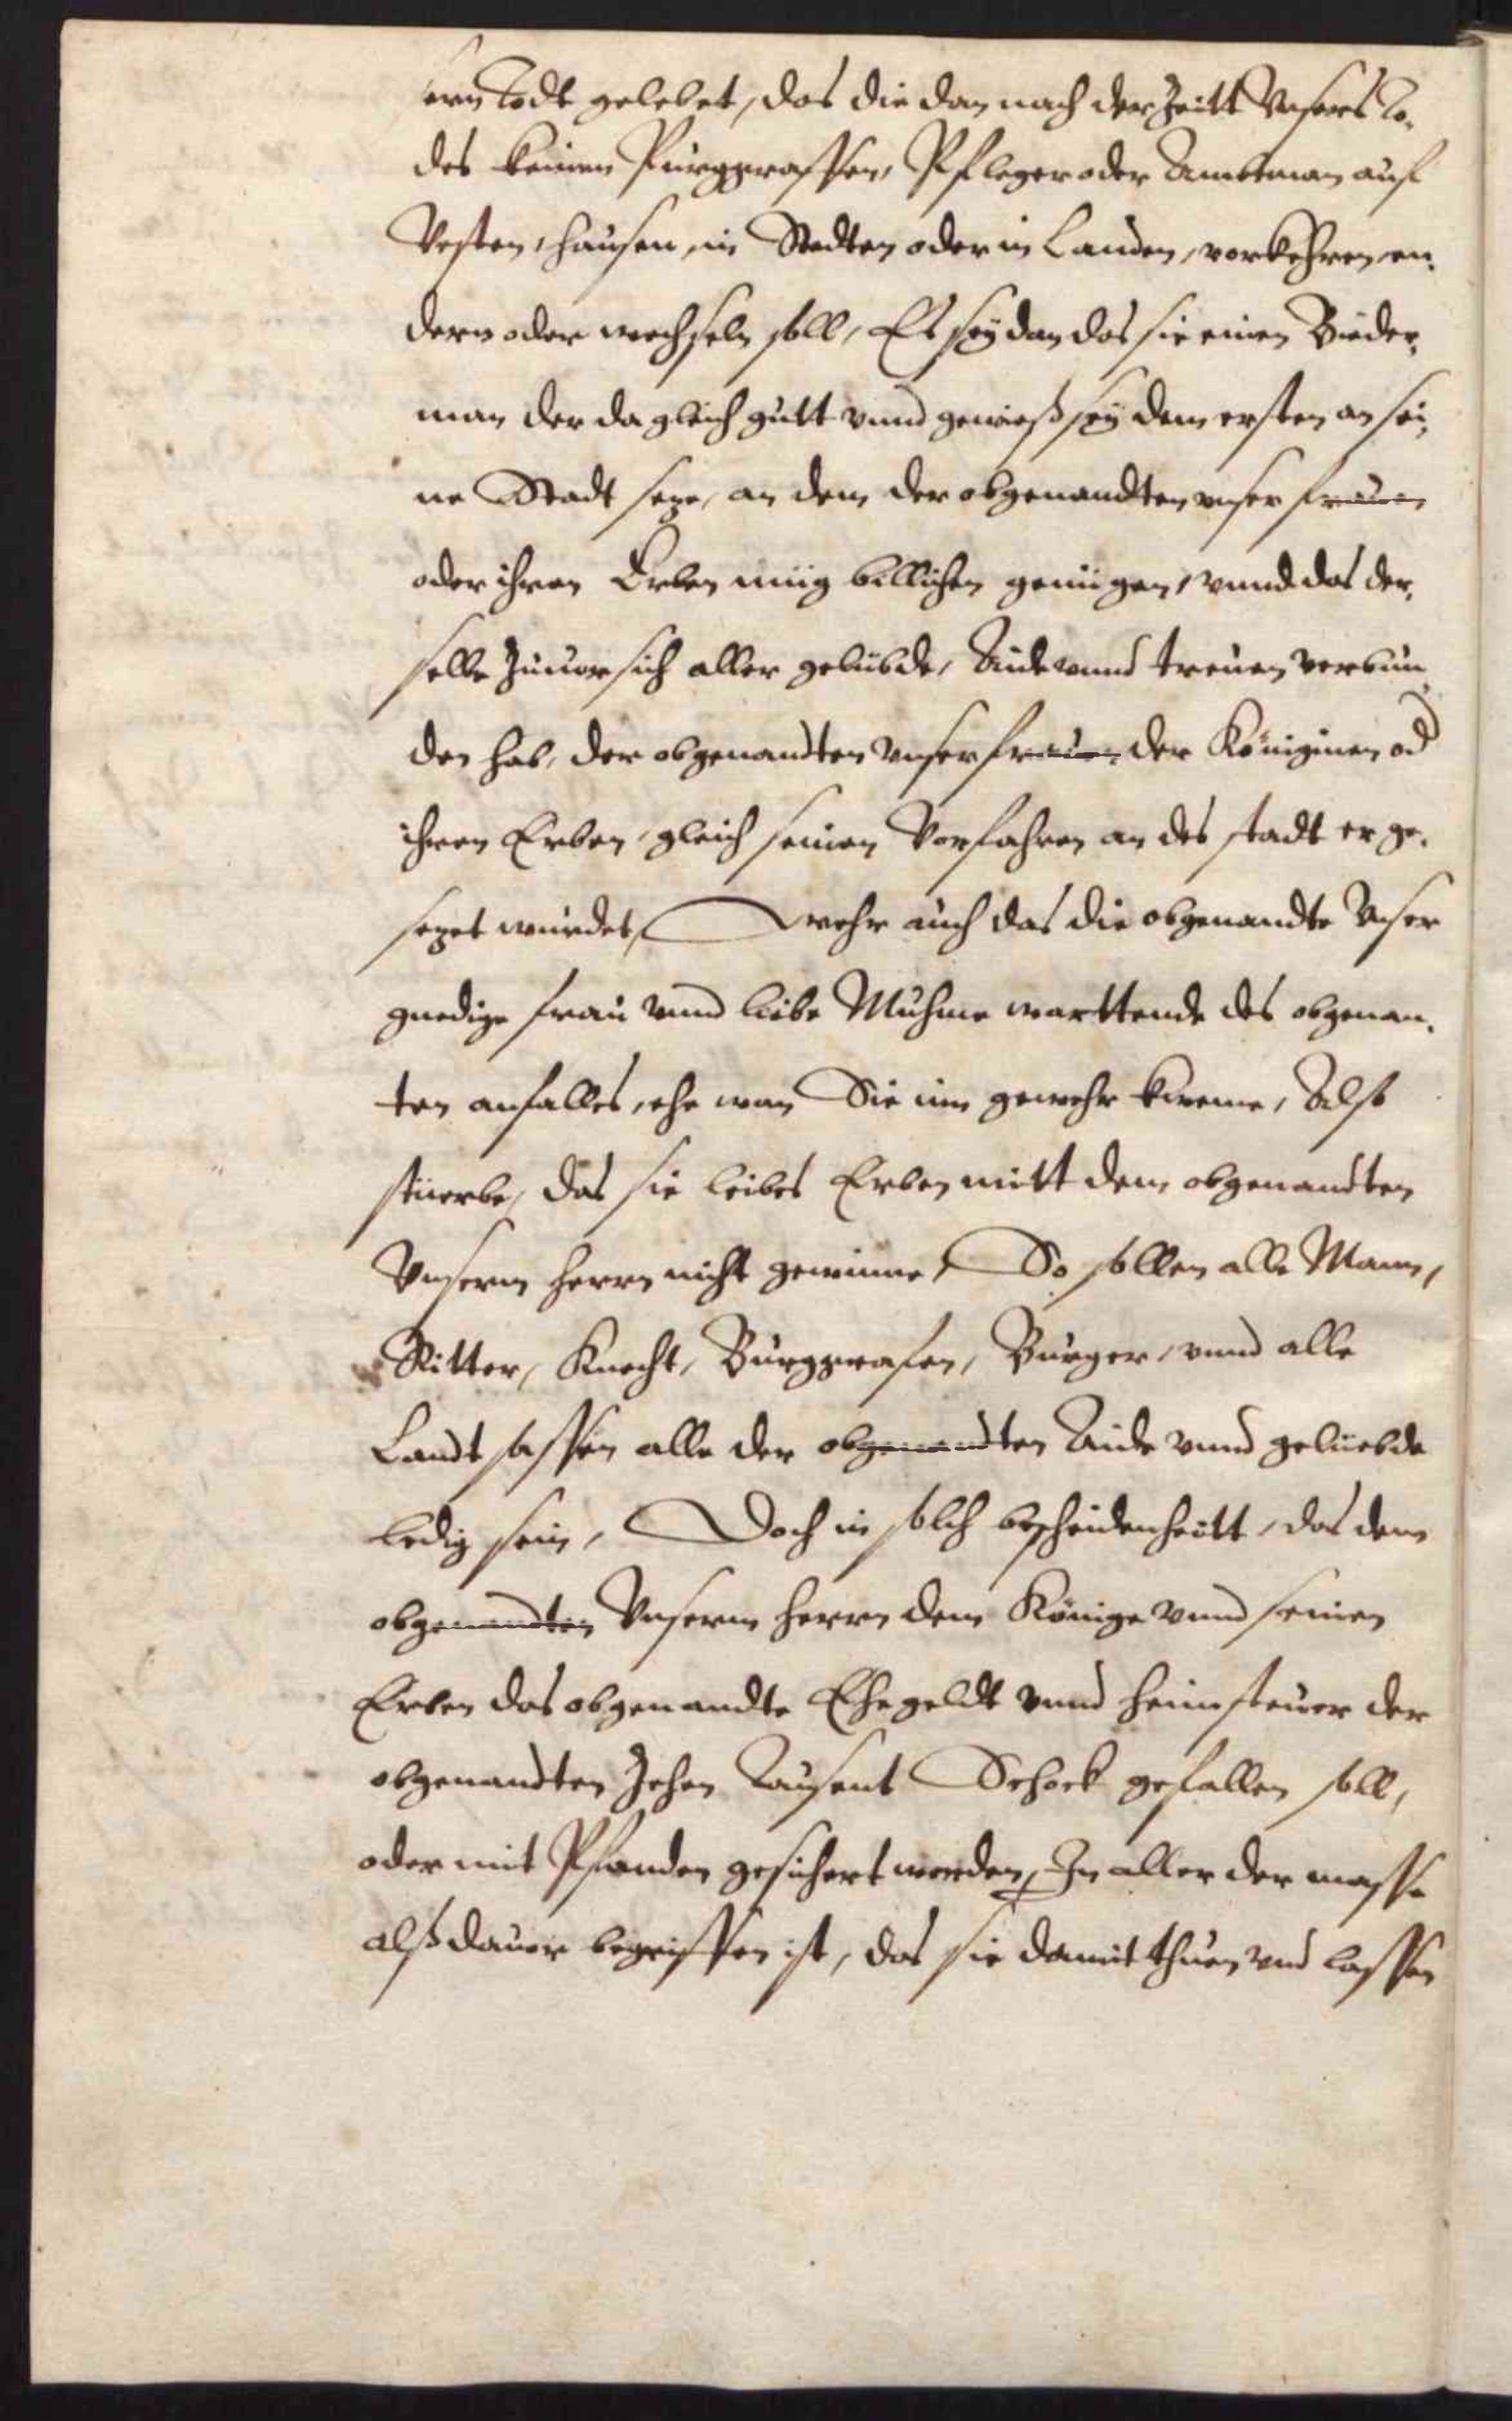 ern Todt gelebet, das die dan nach der Zeitt Vnsers to-
des keinen Purggraffen, Pfleger oder Amttman auf
Vesten, hausen, in Stedten oder in Landen, verkehren, en-
dern oder wechseln soll, Es sey dan das sie einen Bieder-
man der da gleich gutt vnnd gewieß sey dem ersten an sei-
ne Stadt seze, an dem der obgenandten vnser frauen
oder ihren Erben müg billichen genügen, vnnd das der-
selbe zuuor sich aller gelübde, Aide vnnd treuen verbun-
den hab, der obgenandten Vnser frauen der Königinen od
ihren Erben, gleich seinen Vorfahren an des stadt er ge-
sezet wurdet, Wehr auch das die obgenandte Vnser
gnedige frau vnnd liebe Muhme warttende des obgenan-
ten anfalles, ehe wan Sie inn gewehr kweme, Alst
stuerbe, das sie leibes Erben mitt dem obgenandten
Vnserm herrn nicht gewinne, So sollen alle Mann,
Ritter, Knecht, Burggrafen, Burger, vnnd alle
Landtsassen alle der obgenandten Aide vnnd geluebde
ledig sein, Doch in solch bescheidenheitt, das dem
obgenandten Vnserm herrn dem Könige vnnd seinen
Erben das obgenandte Ehegeldt vnnd heimsteuer der
obgenandten Zehen Tausent Schock gefallen soll,
oder mit Pfanden gesichert werden, In aller der masse
alß dauor begriffen ist, das sie damit thuen vnd lassen